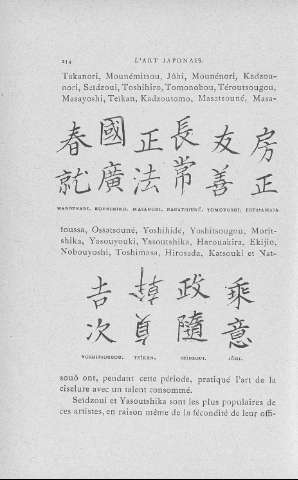 214 L'ART JAPONAIS.
Takanori, Mounémitsou, Jôhi, Mounénori, Kadzou-
nori, Seïdzoui, Toshihira, Tomonobou, Téroutsougou,
Masayoshi, Teïkan, Kadzoutomo, Masatsouné, Masa-
春 國 正 長 友 房
就 廣 法 常 善 正
HAROUNARI. KOUNIHIRO. MASANORI. NAGATSOUNÉ. TOMOYOSHI. FOUSAMASA.
toussa, Ossatsouné, Yoshihidé, Yoshitsougou, Morit-
shika, Yasouyouki, Yasoutshika, Harouakira, Ekijio,
Nobouyoshi, Toshimasa, Hirosada, Katsouki et Nat-
吉 政 乘
次 貞 隨 意
YOSHITSOUGOU. TEÏKAN. SEIDZOUI. JÔHI.
souô ont, pendant cette période, pratiqué l'art de la
ciselure avec un talent consommé.
Seïdzoui et Yasoutshika sont les plus populaires de
ces artistes, en raison même de la fécondité de leur offi-